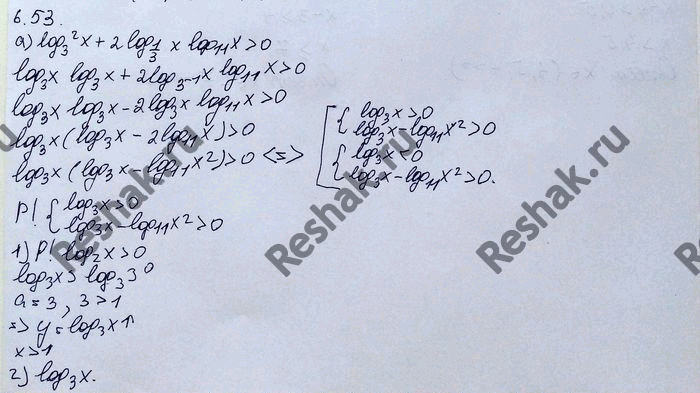 6.53.
а) log₃²x + 2log_{1/3} x log₁₁x > 0
log₃x log₃x + 2log_{3⁻¹} x log₁₁x > 0
log₃x log₃x - 2log₃x log₁₁x > 0
log₃x (log₃x - 2log₁₁x) > 0
log₃x (log₃x - log₁₁x²) > 0 <=> [ { log₃x > 0
log₃x - log₁₁x² > 0
{ log₃x < 0
log₃x - log₁₁x² > 0.
Р! { log₃x > 0
log₃x - log₁₁x² > 0
1) Р! log₂x > 0
log₃x > log₃3⁰
a = 3, 3 > 1
=> y = log₃x ↑
x > 1
2) log₃x.
Reshak.ru
Reshak.ru
Reshak.ru